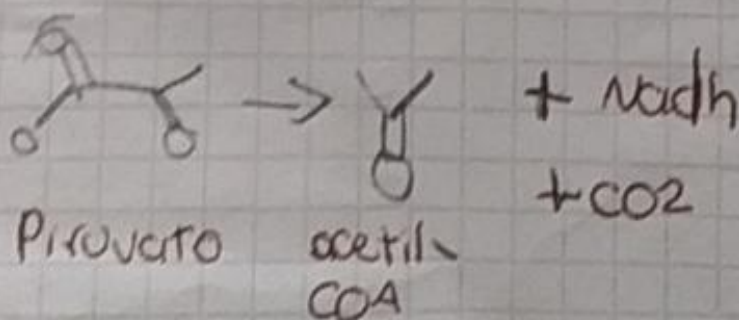 O
O
O
→
O
+ Nadh
+ CO2
Piruvato
acetil
COA